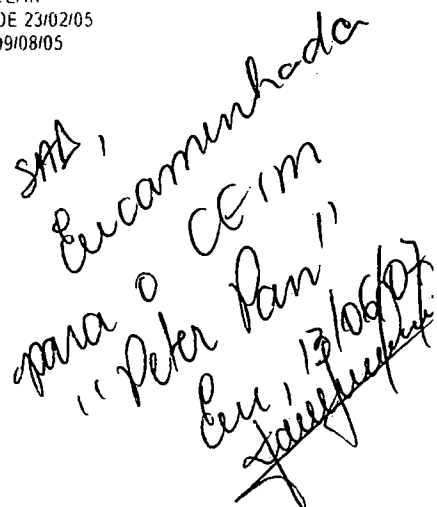 DE 23/02/05
09/08/05
SAD,
Encaminhada
para o CEIM
"Peter Pan"
Em, 13/06/07